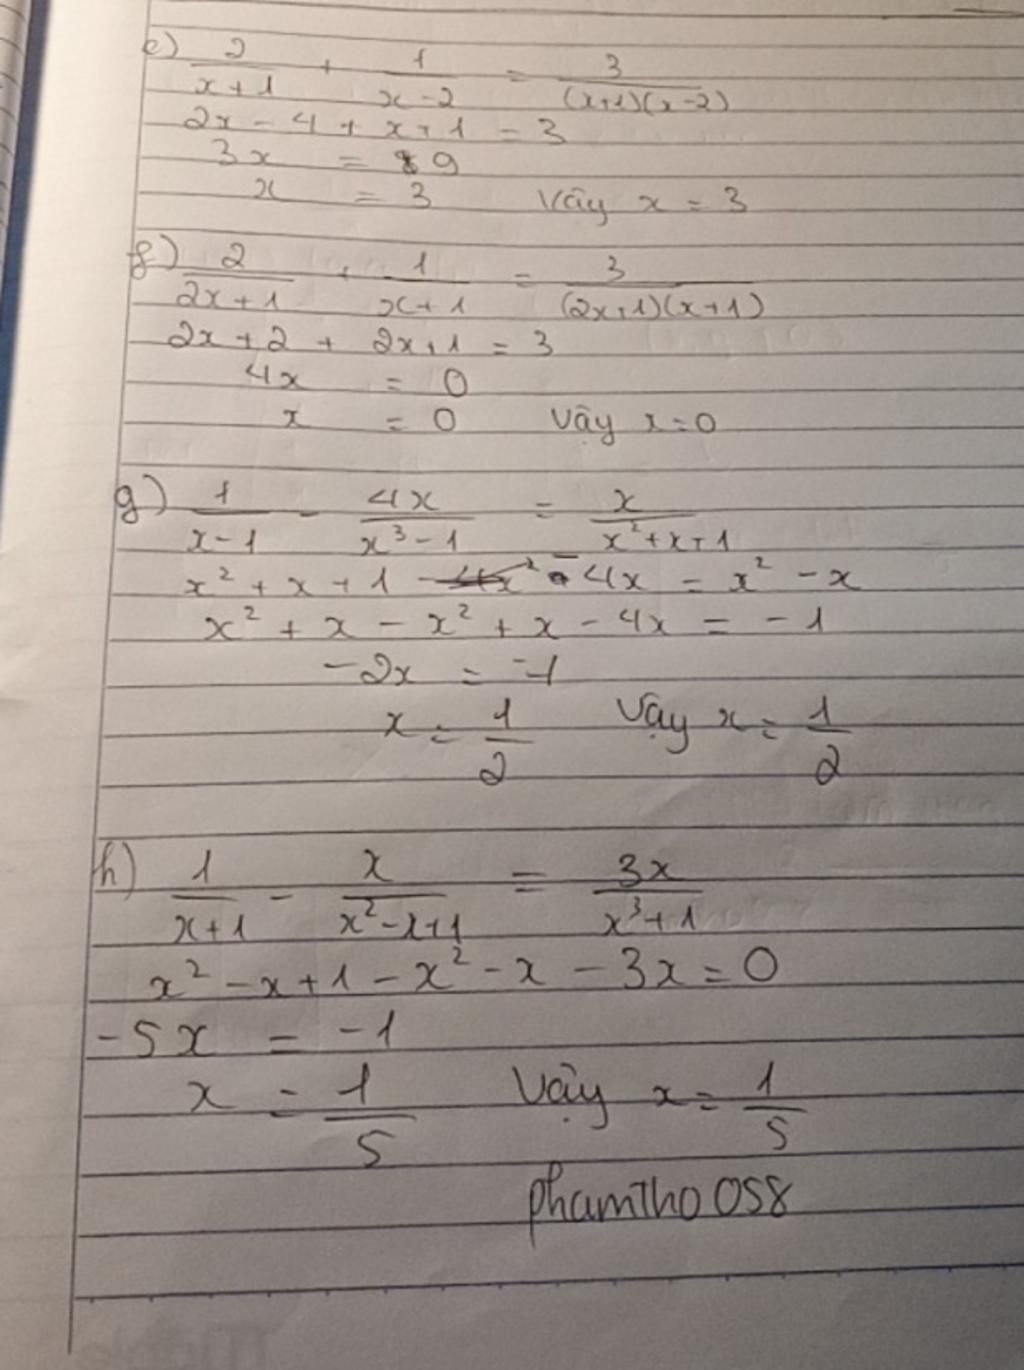 e) 2/(x+1) + 1/(x-2) = 3/((x+1)(x-2))
2x - 4 + x + 1 = 3
3x = 9
x = 3 Vậy x = 3
f) 2/(2x+1) + 1/(x+1) = 3/((2x+1)(x+1))
2x + 2 + 2x + 1 = 3
4x = 0
x = 0 Vậy x = 0
g) 1/(x-1) - 4x/(x³-1) = x/(x²+x+1)
x² + x + 1 - 4x = x² - x
x² + x - x² + x - 4x = -1
-2x = -1
x = 1/2 Vậy x = 1/2
h) 1/(x+1) - x/(x²-x+1) = 3x/(x³+1)
x² - x + 1 - x² - x - 3x = 0
-5x = -1
x = 1/5 Vậy x = 1/5
phamtho058